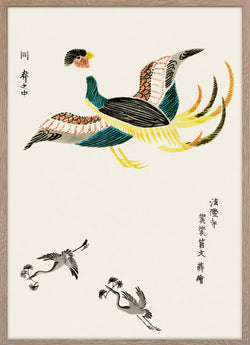 同 斉之中
法隆寺
袈裟筥文蒔繪